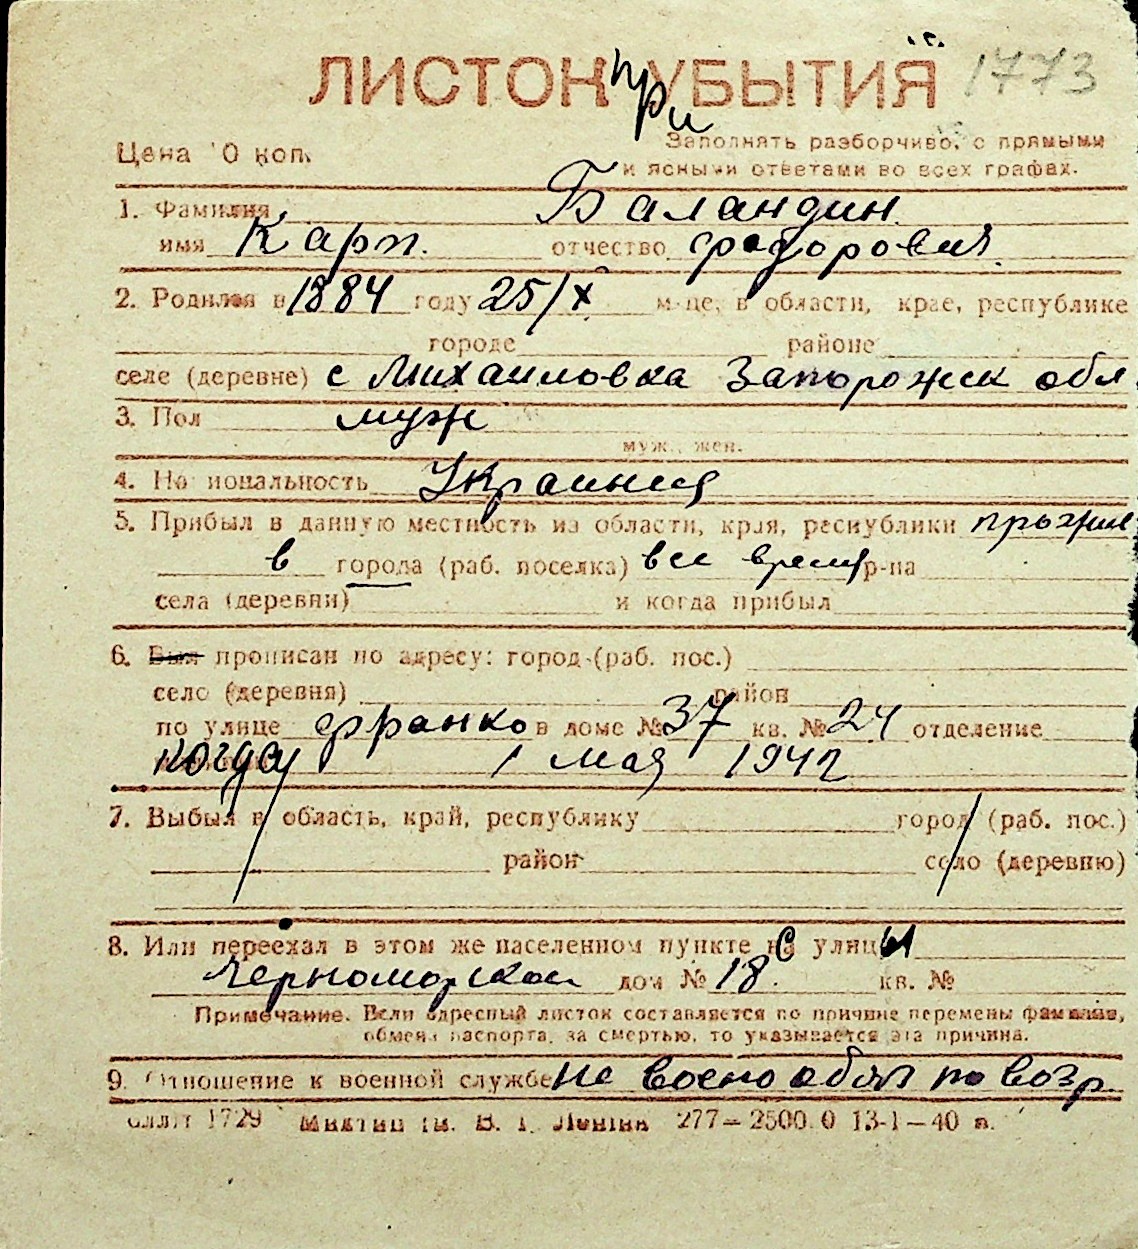 ЛИСТОК при УБЫТИЯ 1773
Цена 10 коп. Заполнять разборчиво, с прямыми
и ясными ответами во всех графах.
1. Фамилия Баландин
имя Карп. отчество Федорович.
2. Родился в 1884 году 25/X м-це, в области, крае, республике
городе районе
селе (деревне) с Михайловка Запорожск обл.
3. Пол муж
муж., жен.
4. Национальность Украинец
5. Прибыл в данную местность из области, края, республики прожив
в города (раб. поселка) все время р-на
села (деревни) и когда прибыл
6. Был прописан по адресу: город (раб. пос.)
село (деревня) район
по улице Франко в доме № 37 кв. № 24 отделение
когда 1 мая 1942
7. Выбыл в область, край, республику город (раб. пос.)
район село (деревню)
8. Или переехал в этом же населенном пункте с улицы
Черноморской дом № 18. кв. №
Примечание. Если адресный листок составляется по причине перемены фамилии,
обмена паспорта, за смертью, то указывается эта причина.
9. Отношение к военной службе не военообяз по возр.
1729 им. В. І. Леніна 277—2500.0 13-I—40 п.